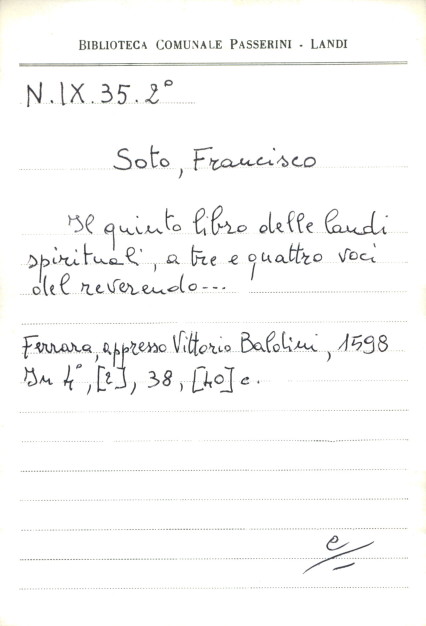 BIBLIOTECA COMUNALE PASSERINI - LANDI
N.IX.35.2°
Soto, Francisco
Il quinto libro delle laudi
spirituali, a tre e quattro voci
del reverendo...
Ferrara, appresso Vittorio Baldini, 1598
In 4°, [2], 38, [40] c.
e